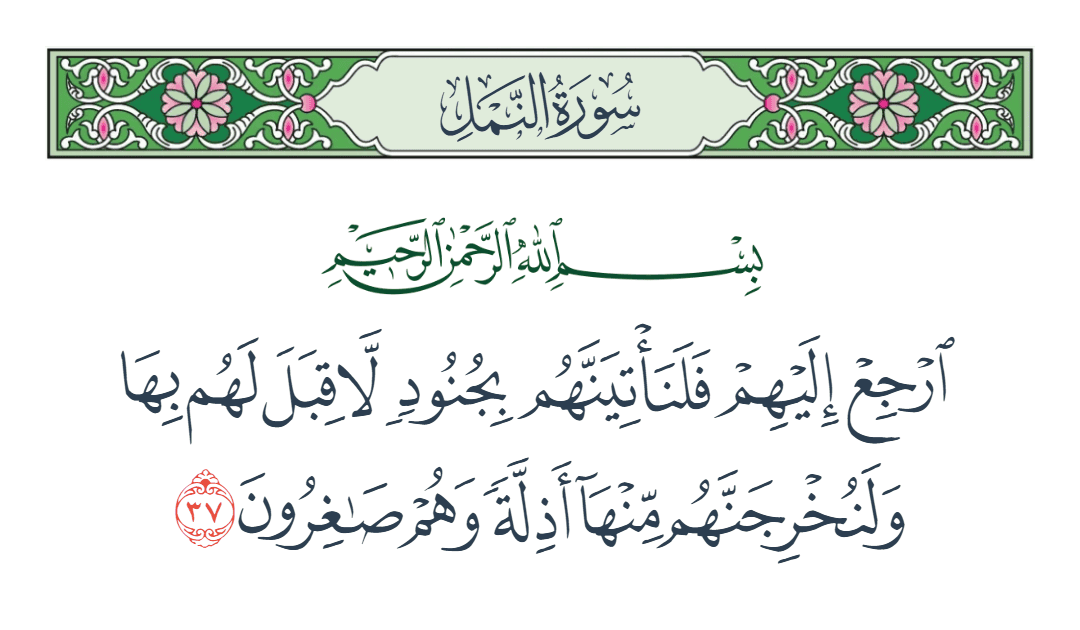 سُورَةُ النَّمۡلِ
بِسۡمِ ٱللَّهِ ٱلرَّحۡمَٰنِ ٱلرَّحِيمِ
ٱرۡجِعۡ إِلَيۡهِمۡ فَلَنَأۡتِيَنَّهُم بِجُنُودٖ لَّا قِبَلَ لَهُم بِهَا
وَلَنُخۡرِجَنَّهُم مِّنۡهَآ أَذِلَّةٗ وَهُمۡ صَٰغِرُونَ ٣٧